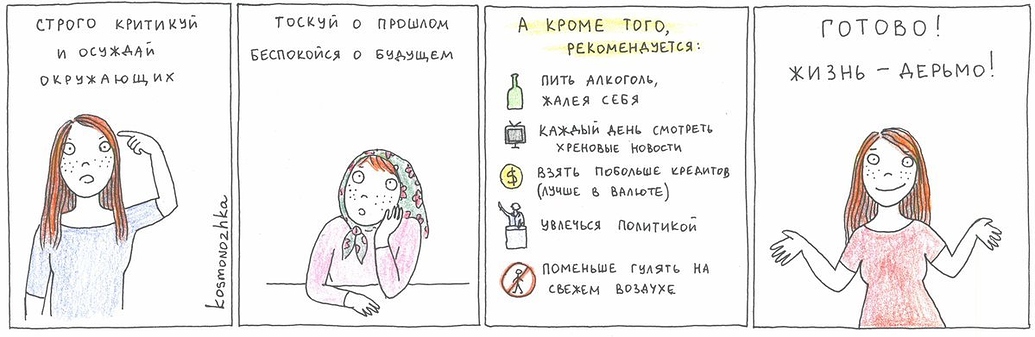 СТРОГО КРИТИКУЙ
И ОСУЖДАЙ
ОКРУЖАЮЩИХ
kosmonozhka
ТОСКУЙ О ПРОШЛОМ
БЕСПОКОЙСЯ О БУДУЩЕМ
А КРОМЕ ТОГО,
РЕКОМЕНДУЕТСЯ:
ПИТЬ АЛКОГОЛЬ,
ЖАЛЕЯ СЕБЯ
КАЖДЫЙ ДЕНЬ СМОТРЕТЬ
ХРЕНОВЫЕ НОВОСТИ
$ ВЗЯТЬ ПОБОЛЬШЕ КРЕДИТОВ
(ЛУЧШЕ В ВАЛЮТЕ)
УВЛЕЧЬСЯ ПОЛИТИКОЙ
ПОМЕНЬШЕ ГУЛЯТЬ НА
СВЕЖЕМ ВОЗДУХЕ
ГОТОВО!
ЖИЗНЬ – ДЕРЬМО!